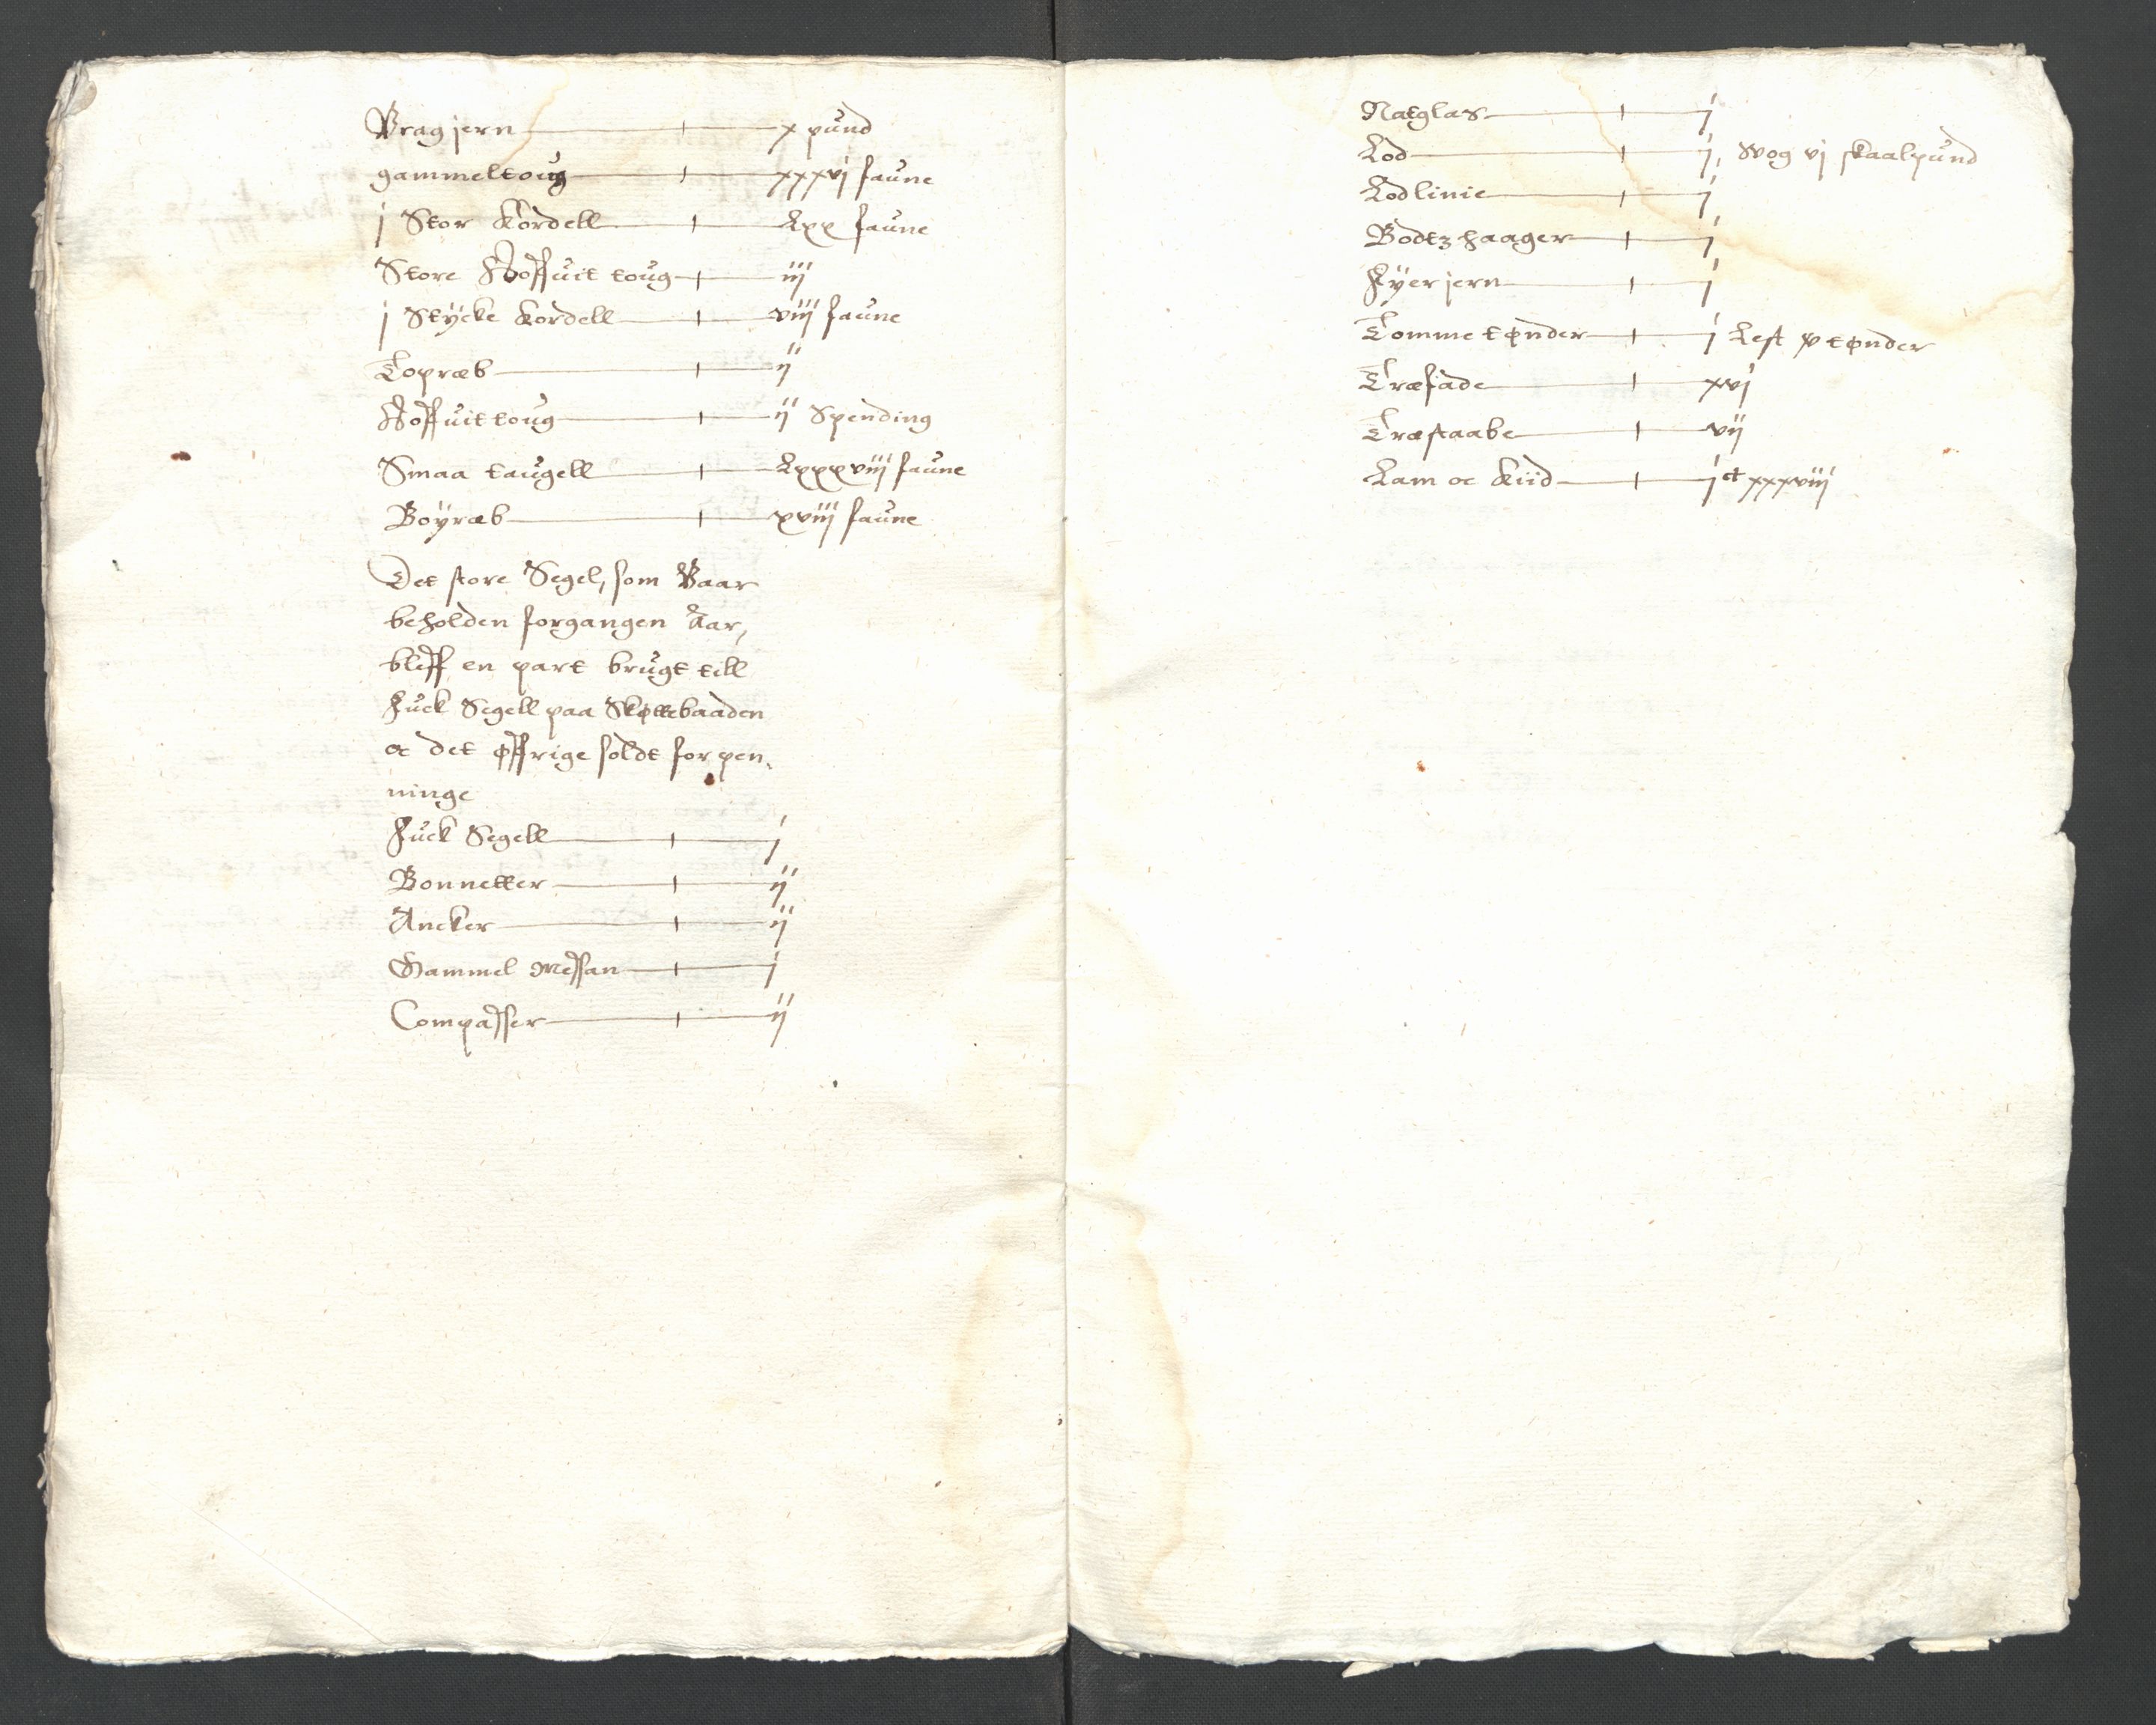 Vrag jern x pund
gammeltoug xxxvj faune
j Stor Kordell Lxx faune
Store Hoffuit toug iij
j Stycke Kordell viij faune
Topræb ij
Hoffuit toug ij Spending
Smaa taugell Lxxxviij faune
Boyræb xviij faune
Det store Segel, som Vaar
beholden forgangen Aar,
bleff en part brugt till
Fuck Segell paa Skøttebaaden
oc det øffrige soldt for pen-
ninge
Fuck Segell j
Bonnetter ij
Ancker ij
Gammel Messan j
Compasser ij
Natglas j
Lod j, Vog vj skaalpund
Lodlinie j
Bodtz haager j
Fyer jern j
Tomme tønder j Lest x tønder
Træfade xvj
Træstaabe vij
Lam oc Kiid jct xxxviij